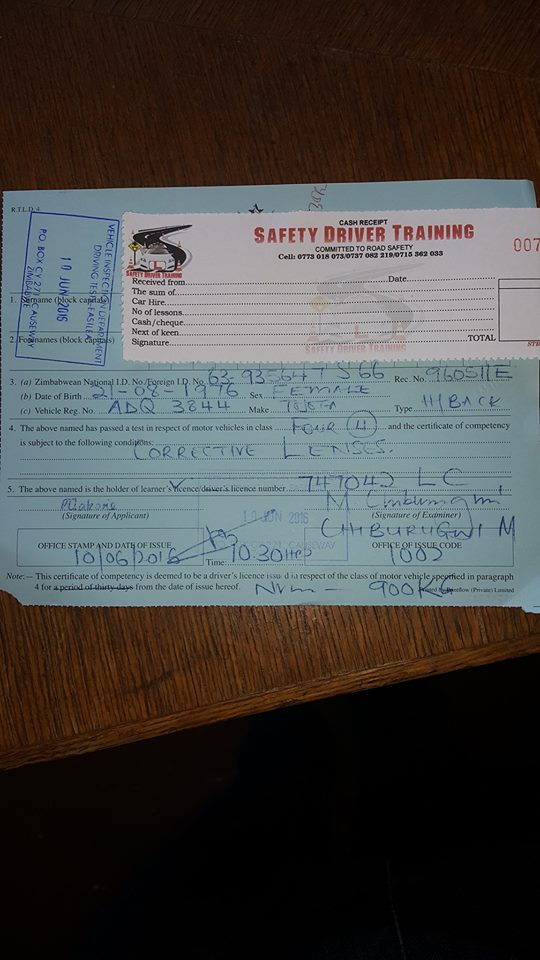 R.T.L.D. 4
CASH RECEIPT
SAFETY DRIVER TRAINING
COMMITTED TO ROAD SAFETY
Cell: 0773 018 073/0737 082 219/0715 362 033
007
SAFETY DRIVER TRAINING
Received from
Date
The sum of
Car Hire
No of lessons
Cash/cheque
Next of keen
Signature
TOTAL
SAFETY DRIVER TRAINING
VEHICLE INSPECTION DEPARTMENT
DRIVING TEST EASILEE
10 JUN 2016
PO BOX CY 27 CAUSEWAY
ZIMBABWE
1. Surname (block capitals)
2. Forenames (block capitals)
3. (a) Zimbabwean National I.D. No./Foreign I.D. No. 63-935647 S 66 Rec. No. 960511E
(b) Date of Birth 21-08-1976 Sex FEMALE
(c) Vehicle Reg. No. ADQ 3844 Make TOYOTA Type H/BACK
4. The above named has passed a test in respect of motor vehicles in class FOUR (4) and the certificate of competency
is subject to the following conditions:
CORRECTIVE LENSES.
5. The above named is the holder of learner's licence/driver's licence number 747042 LC
(Signature of Applicant)
(Signature of Examiner)
10 JUN 2016
CAUSEWAY
CHIBURUGWI M
OFFICE STAMP AND DATE OF ISSUE
10/06/2016
Time: 10.30Hrs
OFFICE OF ISSUE CODE
1002
Note:— This certificate of competency is deemed to be a driver's licence issued in respect of the class of motor vehicle specified in paragraph
4 for a period of thirty days from the date of issue hereof.
NVM - 900KG
(Private) Limited